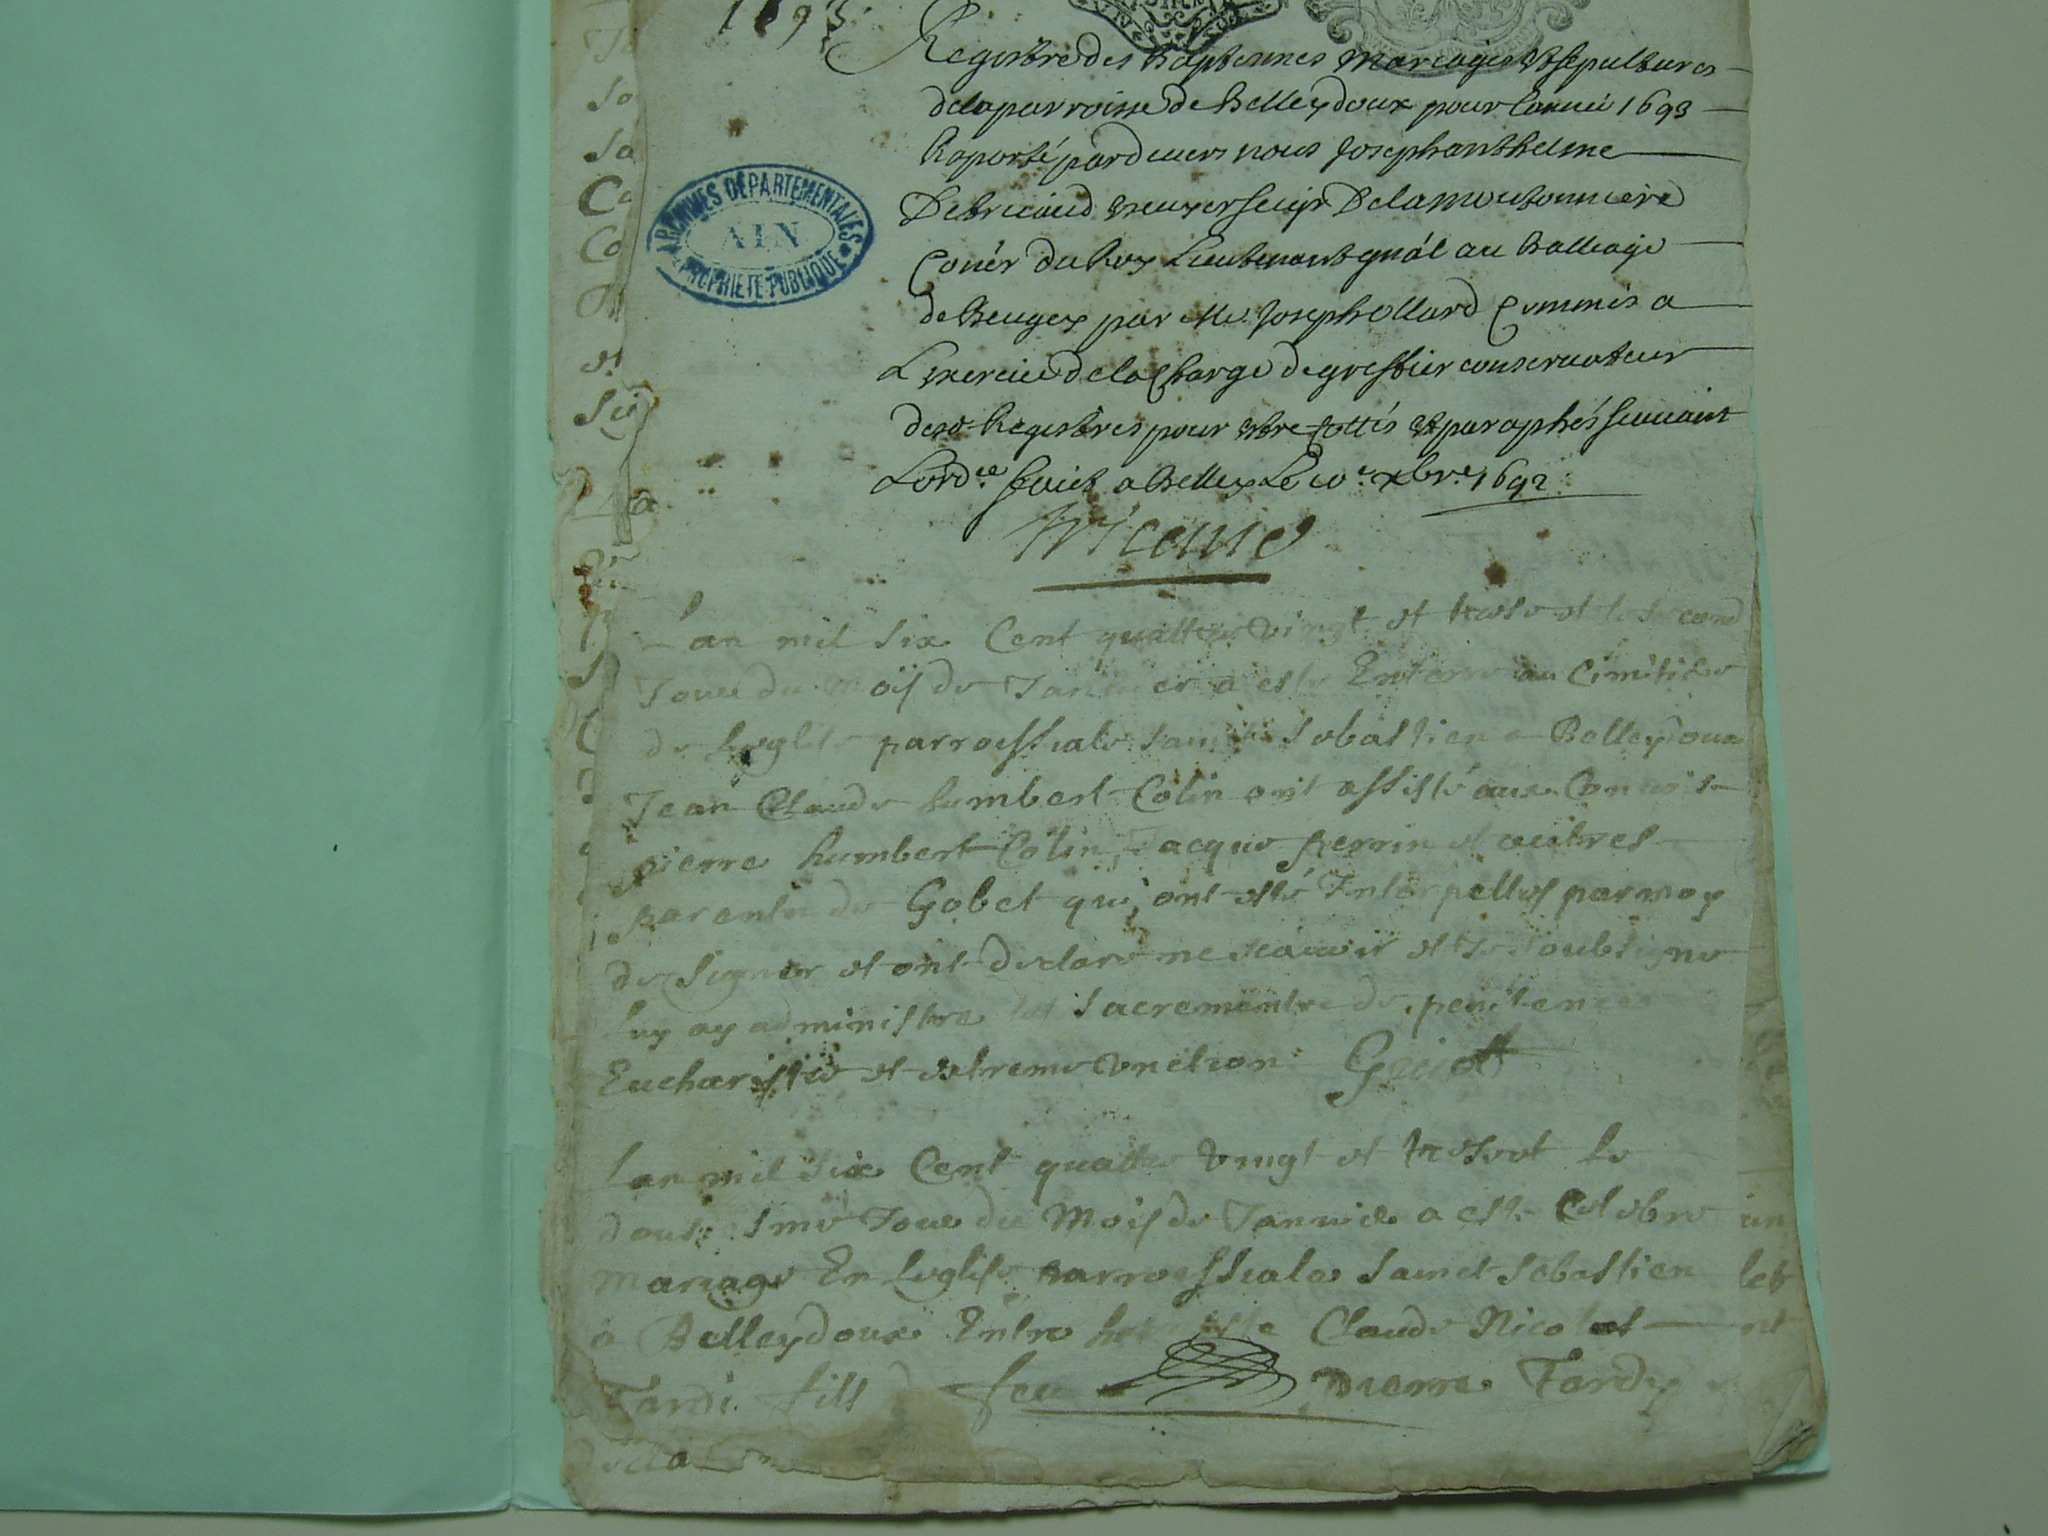 1693
Registre des Baptesmes mariages et sepultures
de la parroisse de Belleydoux pour lannee 1693
Raporté pardevers nous Joseph anthelme
De bricaud escuyer seigr De la moutonniere
Coner du Roy Lieutenant gnal au Balliage
de Beugey par Me Joseph ollard Commis a
L exercice de la Charge de greffier conservateur
desd. Registres pour estre cottés et paraphés suivant
Lordce faict a Belley Le xbre 1692
ARCHIVES DÉPARTEMENTALES
AIN
PROPRIÉTÉ PUBLIQUE
L'an mil six Cent quattre vingt et treise et le second
Jour du moys de Janvier a este Enterre au Cimitiere
de leglise parroissiale sainct Sebastien a Belleydoux
Jean Claude humbert Colin ont assisté aux Convois
pierre humbert Colin, Jacque perrin et autres
parents de Gobet qui ont esté Interpelles par moy
de signer et ont declare ne scavoir et Je soubsigne
luy ay administre les sacrements de penitence
Eucharistie et extreme unction
Lan mil six Cent quattre vingt et treise et le
dousiesme Jour du Mois de Janvier a este Celebre
mariage En leglise parroissiale sainct Sebastien
a Belleydoux Entre Claude Nicolas
Tardi fills feu pierre Tardy